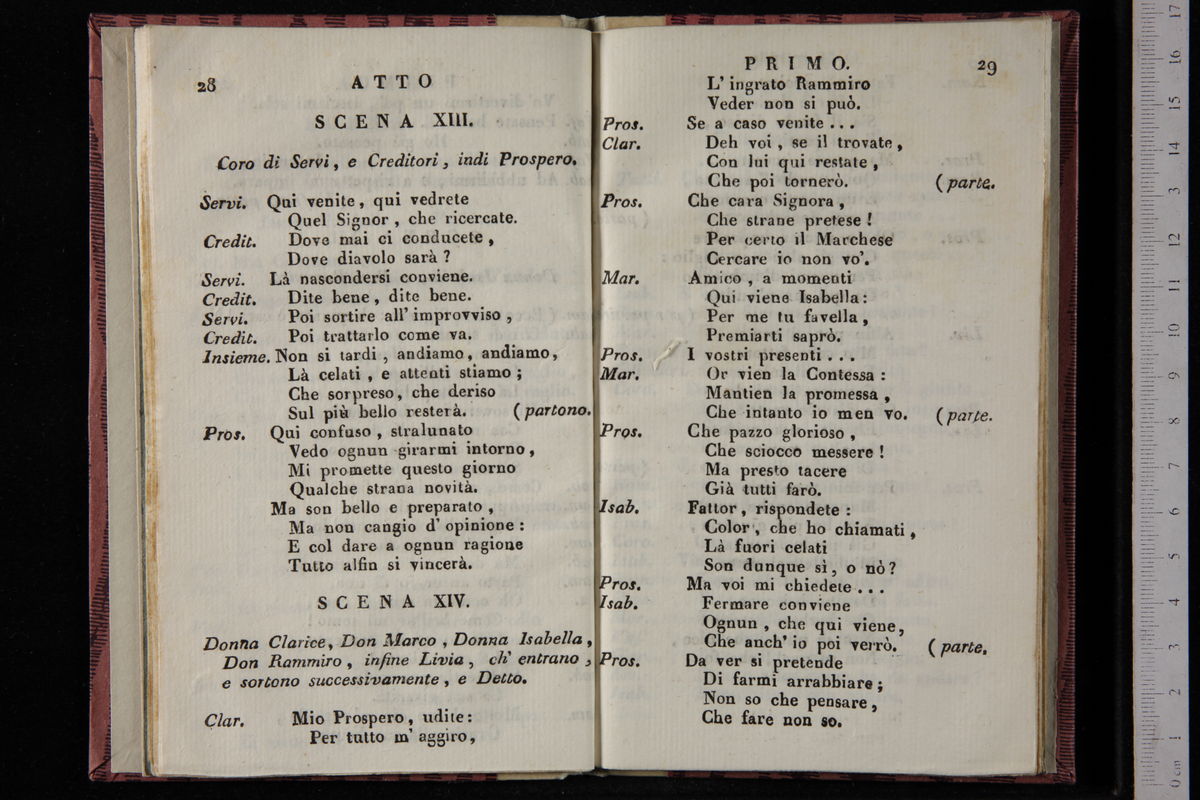 28
ATTO
SCENA XIII.
Coro di Servi, e Creditori, indi Prospero.
Servi. Qui venite, qui vedrete
Quel Signor, che ricercate.
Credit. Dove mai ci conducete,
Dove diavolo sarà?
Servi. Là nascondersi conviene.
Credit. Dite bene, dite bene.
Servi. Poi sortire all' improvviso,
Credit. Poi trattarlo come va.
Insieme. Non si tardi, andiamo, andiamo,
Là celati, e attenti stiamo;
Che sorpreso, che deriso
Sul più bello resterà. (partono.
Pros. Qui confuso, stralunato
Vedo ognun girarmi intorno,
Mi promette questo giorno
Qualche strana novità.
Ma son bello e preparato,
Ma non cangio d' opinione:
E col dare a ognun ragione
Tutto alfin si vincerà.
SCENA XIV.
Donna Clarice, Don Marco, Donna Isabella,
Don Rammiro, infine Livia, ch' entrano,
e sortono successivamente, e Detto.
Clar. Mio Prospero, udite:
Per tutto m' aggiro,
PRIMO.
29
L' ingrato Rammiro
Veder non si può.
Pros. Se a caso venite...
Clar. Deh voi, se il trovate,
Con lui qui restate,
Che poi tornerò. (parte.
Pros. Che cara Signora,
Che strane pretese!
Per certo il Marchese
Cercare io non vo'.
Mar. Amico, a momenti
Qui viene Isabella:
Per me tu favella,
Premiarti saprò.
Pros. I vostri presenti...
Mar. Or vien la Contessa:
Mantien la promessa,
Che intanto io men vo. (parte.
Pros. Che pazzo glorioso,
Che sciocco messere!
Ma presto tacere
Già tutti farò.
Isab. Fattor, rispondete:
Color, che ho chiamati,
Là fuori celati
Son dunque sì, o nò?
Pros. Ma voi mi chiedete...
Isab. Fermare conviene
Ognun, che qui viene,
Che anch' io poi verrò. (parte.
Pros. Da ver si pretende
Di farmi arrabbiare;
Non so che pensare,
Che fare non so.
0 cm 1 2 3 4 5 6 7 8 9 10 11 12 13 14 15 16 17